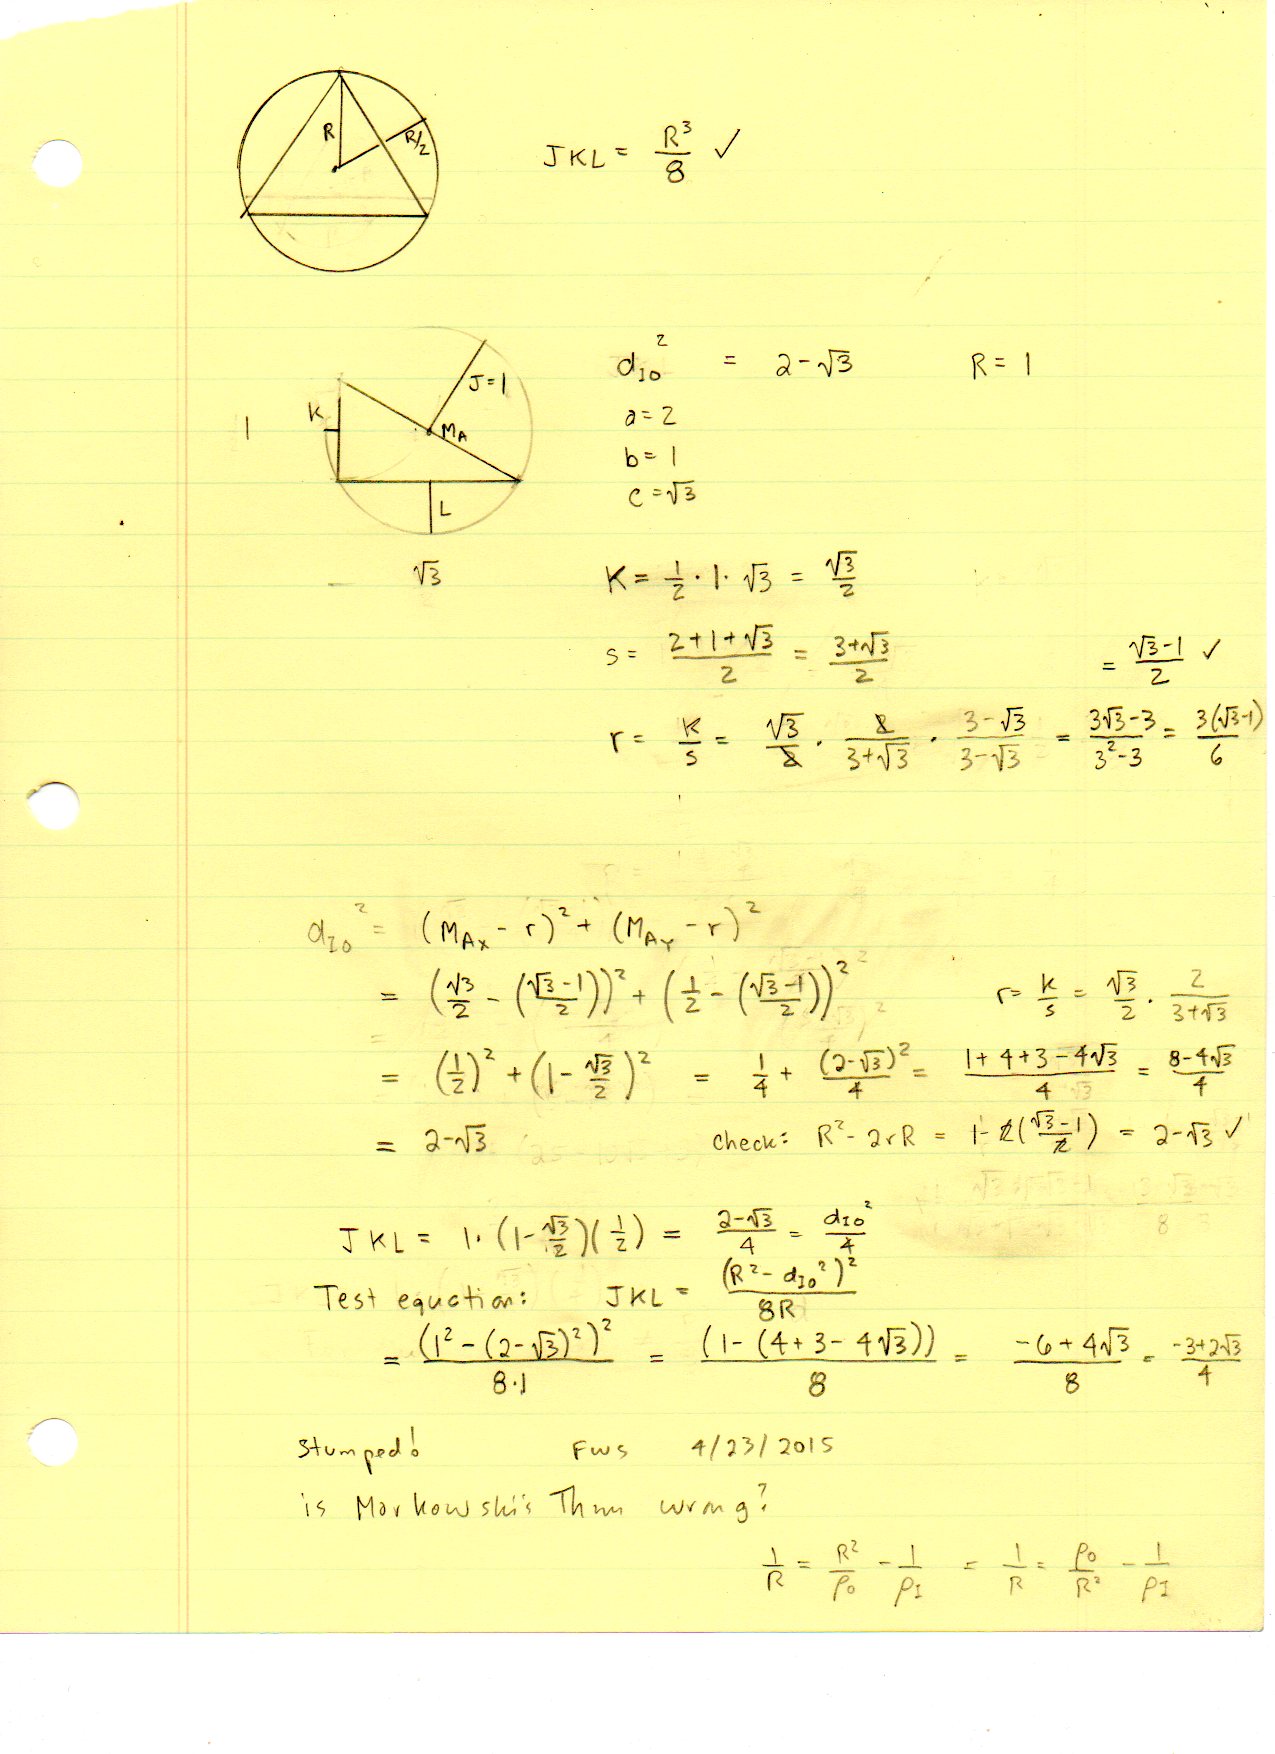 R R/2 JKL = R³/8 ✓
d_IO² = 2-√3 R = 1
1 K J=1 M_A a=2
b=1
L c=√3
√3 K = 1/2 · 1 · √3 = √3/2
s = (2+1+√3)/2 = (3+√3)/2 = (√3-1)/2 ✓
r = K/s = √3/2 · 2/(3+√3) · (3-√3)/(3-√3) = (3√3-3)/(3²-3) = 3(√3-1)/6
d_IO² = (M_Ax - r)² + (M_Ay - r)²
= (√3/2 - ((√3-1)/2))² + (1/2 - ((√3-1)/2))² r = K/s = √3/2 · 2/(3+√3)
= (1/2)² + (1-√3/2)² = 1/4 + (2-√3)²/4 = (1+4+3-4√3)/4 = (8-4√3)/4
= 2-√3 check: R²-2rR = 1-2((√3-1)/2) = 2-√3 ✓
JKL = 1·(1-√3/2)(1/2) = (2-√3)/4 = d_IO²/4
Test equation: JKL = (R²-d_IO²)²/8R
= (1²-(2-√3)²)²/8·1 = (1-(4+3-4√3))/8 = (-6+4√3)/8 = (-3+2√3)/4
Stumped! FWS 4/23/2015
is Markowski's Thm wrong?
1/R = R²/ρ_O - 1/ρ_I = 1/R = ρ_O/R² - 1/ρ_I